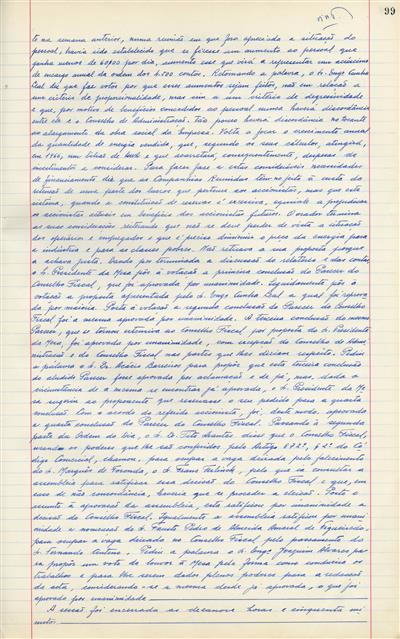 99
te na semana anterior, numa reunião em que fora apreciada a situação do
pessoal, havia sido estabelecido que se fizesse um aumento ao pessoal que
ganha menos de 60$00 por dia, aumento esse que virá a representar um acréscimo
de encargo anual da ordem dos 4.500 contos. Retomando a palavra, o Sr. Engº Cunha
Leal diz que faz votos por que esses aumentos sejam feitos, não em relação a
um critério de proporcionalidade, mas sim a um critério de degressividade
e que, por motivo de benefícios concedidos ao pessoal nunca haverá discordância
entre ele e o Conselho de Administração. Tão pouco haverá discordância no tocante
ao alargamento da obra social da Empresa. Volta a focar o crescimento anual
da quantidade de energia vendida, que, segundo os seus cálculos, atingirá,
em 1966, um bilião de kwh e que acarretará, consequentemente, despesas de
investimento a considerar. Para fazer face a estas consideráveis necessidades
de financiamento diz que as Companhias Reunidas têm-no feito à custa da
retenção de uma parte dos lucros que pertence aos accionistas, mas que este
sistema, quando a constituição de reservas é excessiva, equivale a prejudicar
os accionistas actuais em benefício dos accionistas futuros. O orador termina
as suas considerações reiterando que não se deve perder de vista a situação
dos operários e empregados e que é preciso diminuir o preço da energia para
a indústria e para as classes pobres. Não retirava a sua proposta porque
a achava justa. Dando por terminada a discussão do relatório e das contas,
o Sr. Presidente da Mesa pôs à votação a primeira conclusão do Parecer do
Conselho Fiscal, que foi aprovada por unanimidade. Seguidamente pôs à
votação a proposta apresentada pelo Sr. Engº Cunha Leal a qual foi reprova
da por maioria. Posta à votação a segunda conclusão do Parecer do Conselho
Fiscal foi a mesma aprovada por unanimidade. A terceira conclusão do mesmo
Parecer, que se tornou extensiva ao Conselho Fiscal por proposta do Sr. Presidente
da Mesa, foi aprovada por unanimidade, com excepção do Conselho de Admi
nistração e do Conselho Fiscal nas partes que lhes diziam respeito. Pediu
a palavra o Sr. Dr. Acácio Barreiros para propôr que esta terceira conclusão
do aludido Parecer fosse aprovada por aclamação e de pé, mas, dada a
circunstância de a mesma se encontrar já aprovada, o Sr. Presidente da Me
sa sugeriu ao proponente que reservasse o seu pedido para a quarta
conclusão. Com o acordo do referido accionista, foi, deste modo, aprovada
a quarta conclusão do Parecer do Conselho Fiscal. Passando à segunda
parte da Ordem do dia, o Sr. Dr. Tito Arantes disse que o Conselho Fiscal,
usando os poderes que lhe são conferidos pelo Artigo do Có
digo Comercial, chamou, para ocupar a vaga deixada pelo falecimento
do Sr. Marquês de Foronda, o Sr. Frans Terlinck, pelo que ia consultar a
assembleia para ratificar essa decisão do Conselho Fiscal e que, em
caso de não concordância, haveria que se proceder a eleição. Posto o
assunto à aprovação da assembleia, esta ratificou por unanimidade a
decisão do Conselho Fiscal. Igualmente a assembleia ratificou por unani
midade a nomeação do Sr. Fausto Pedro de Almeida Amaral de Figueiredo,
para ocupar a vaga deixada no Conselho Fiscal pelo passamento do
Sr. Fernando Centeno. Pediu a palavra o Sr. Engº Joaquim Alvares pa
ra propôr um voto de louvor à Mesa pela forma como conduziu os
trabalhos e para lhe serem dados plenos poderes para a redacção
da acta, considerando-se a mesma desde já aprovada, o que foi
aprovado por unanimidade
A sessão foi encerrada às dezanove horas e cinquenta mi
nutos